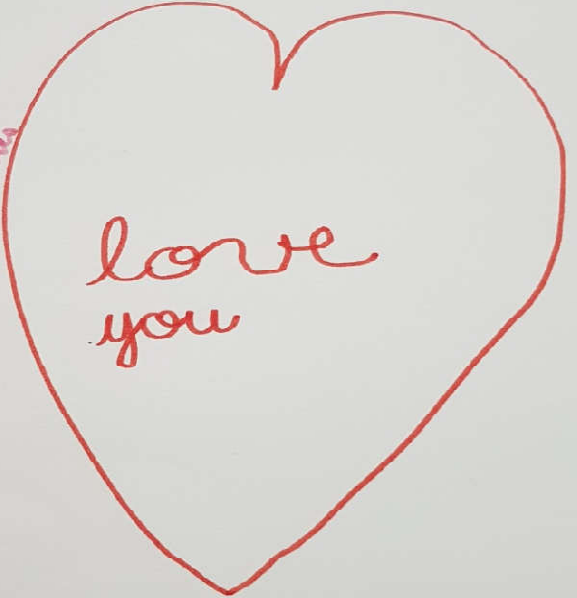 love
you